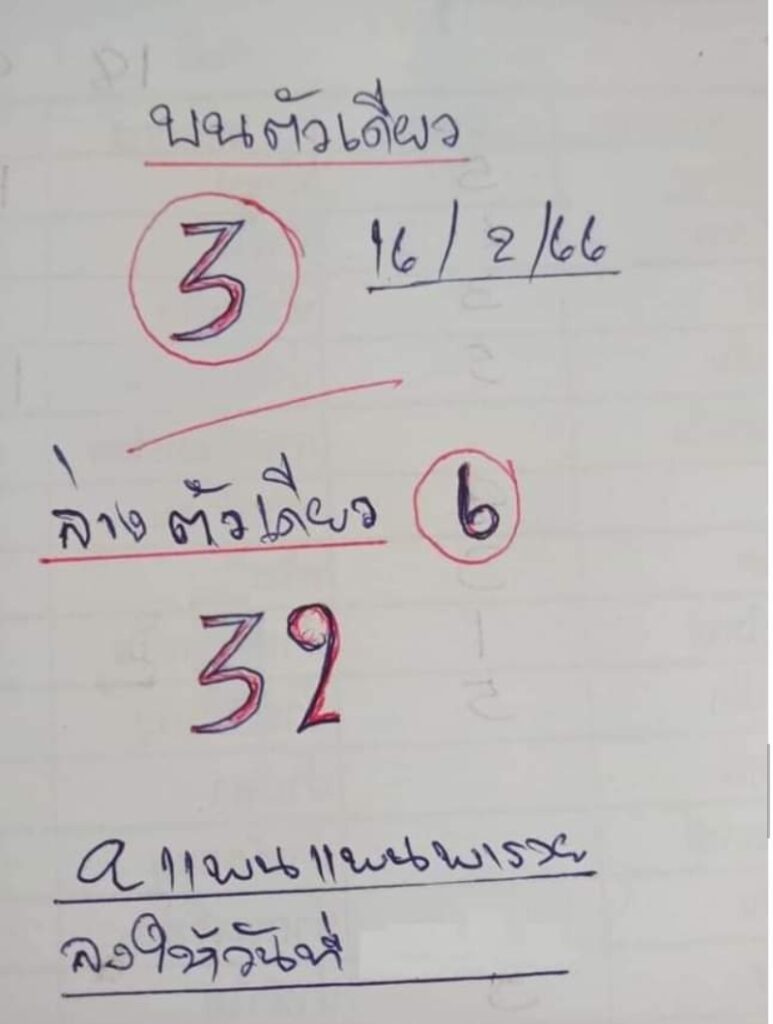 บนตัวเดียว
3 16/2/66
ล่างตัวเดียว 6
32
แพนแพนพารวย
ลงให้วันที่